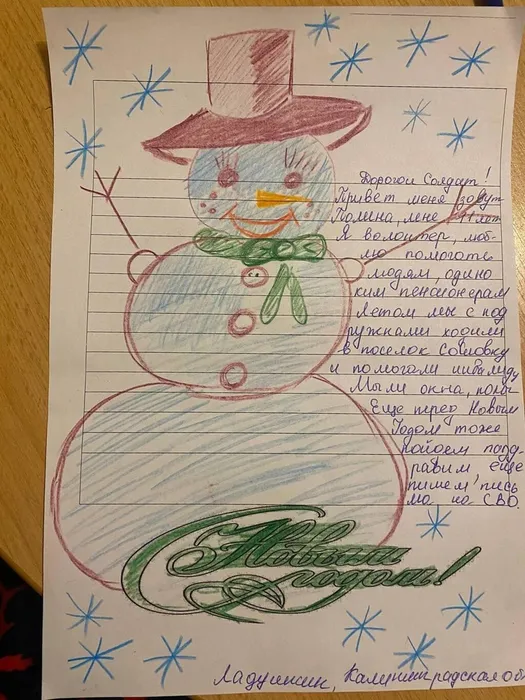 Дорогой Солдат!
Привет меня зовут
Полина, мне 11 лет
Я волонтер, люб-
лю помогать
людям, одино
ким пенсионерам
Летом мы с под
ружками ходили
в поселок Совновку
и помогали инвалиду
Мыли окна, полы
Еще перед Новым
Годом тоже
пойдем позд-
равим, еще
пишем пись
ма на СВО
С Новым
годом!
Ладушкин, Калининградская об